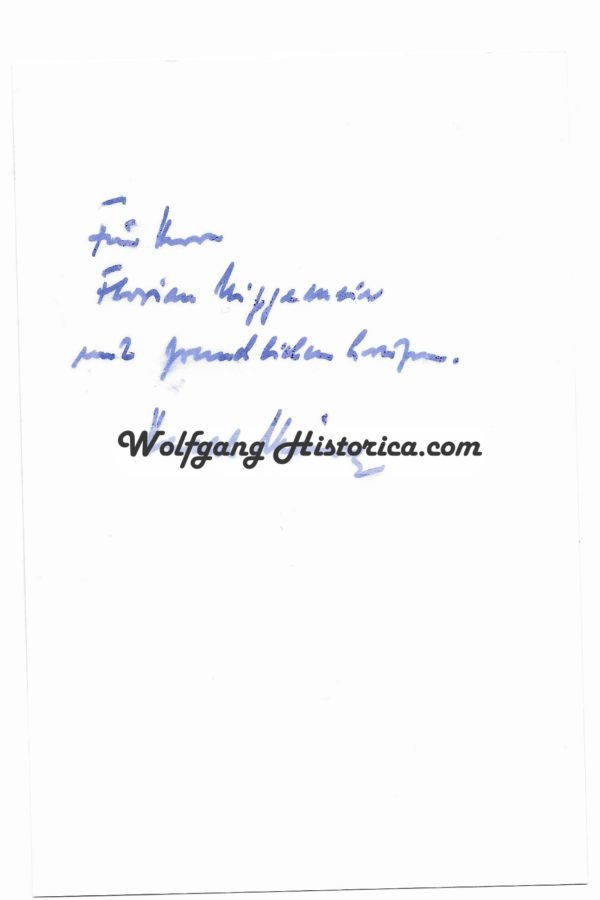 Für Herrn
Florian Niggemeier
mit freundlichen Grüßen.
Wolfgang Historica.com